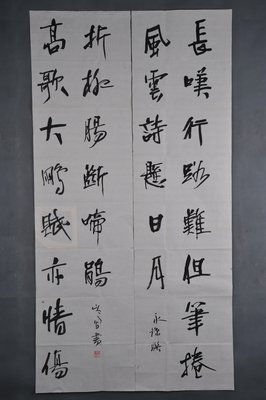 長嘆行路難但筆捲
風雲詩懸日月
高歌大鵬賦亦情傷
折柳腸斷啼鵑